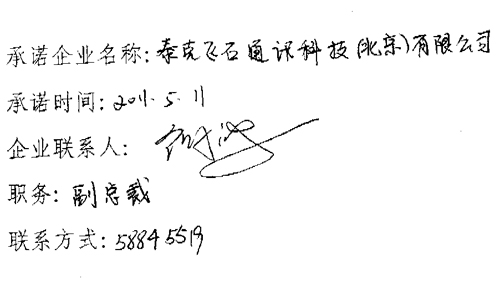 承诺企业名称：泰克飞石通讯科技(北京)有限公司
承诺时间：2011.5.11
企业联系人：
职务：副总裁
联系方式：58845519